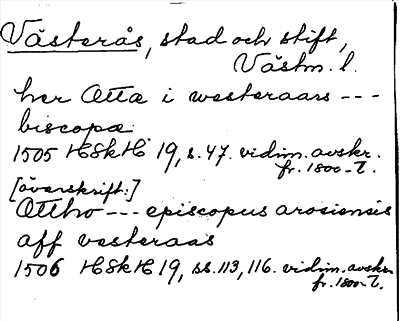 Västerås, stad och stift,
Västm. l.
her Otta i westeraars ---
biscopa
1505 HSkH 19, s. 47. vidim. avskr.
fr. 1800-t.
[överskrift:]
Ottho --- episcopus arosiensis
aff vesteraas
1506 HSkH 19, ss. 113, 116. vidim. avskr.
fr. 1800-t.